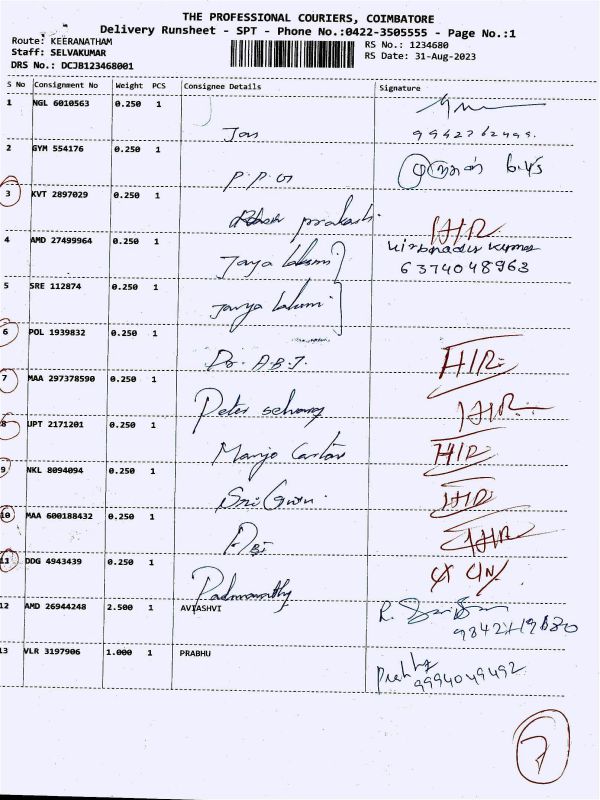 THE PROFESSIONAL COURIERS, COIMBATORE
Delivery Runsheet - SPT - Phone No.:0422-3505555 - Page No.:1
Route: KEERANATHAM
RS No.: 1234680
Staff: SELVAKUMAR
RS Date: 31-Aug-2023
DRS No.: DCJB123468001
S No Consignment No Weight PCS Consignee Details Signature
1 NGL 6010563 0.250 1
2 GYM 554176 0.250 1
P.P.
3 KVT 2897029 0.250 1
prakash. H/R
4 AMD 27499964 0.250 1
Jaya 6374048963
5 SRE 112874 0.250 1
6 POL 1939832 0.250 1
Dr. A.B.J. H/R
7 MAA 297378590 0.250 1
Peter H/R
8 UPT 2171201 0.250 1
H/R
9 NKL 8094094 0.250 1
H/R
10 MAA 600188432 0.250 1
H/R
11 DDG 4943439 0.250 1
12 AMD 26944248 2.500 1 AVIASHVI
R.
13 VLR 3197906 1.000 1 PRABHU
9994049492
7